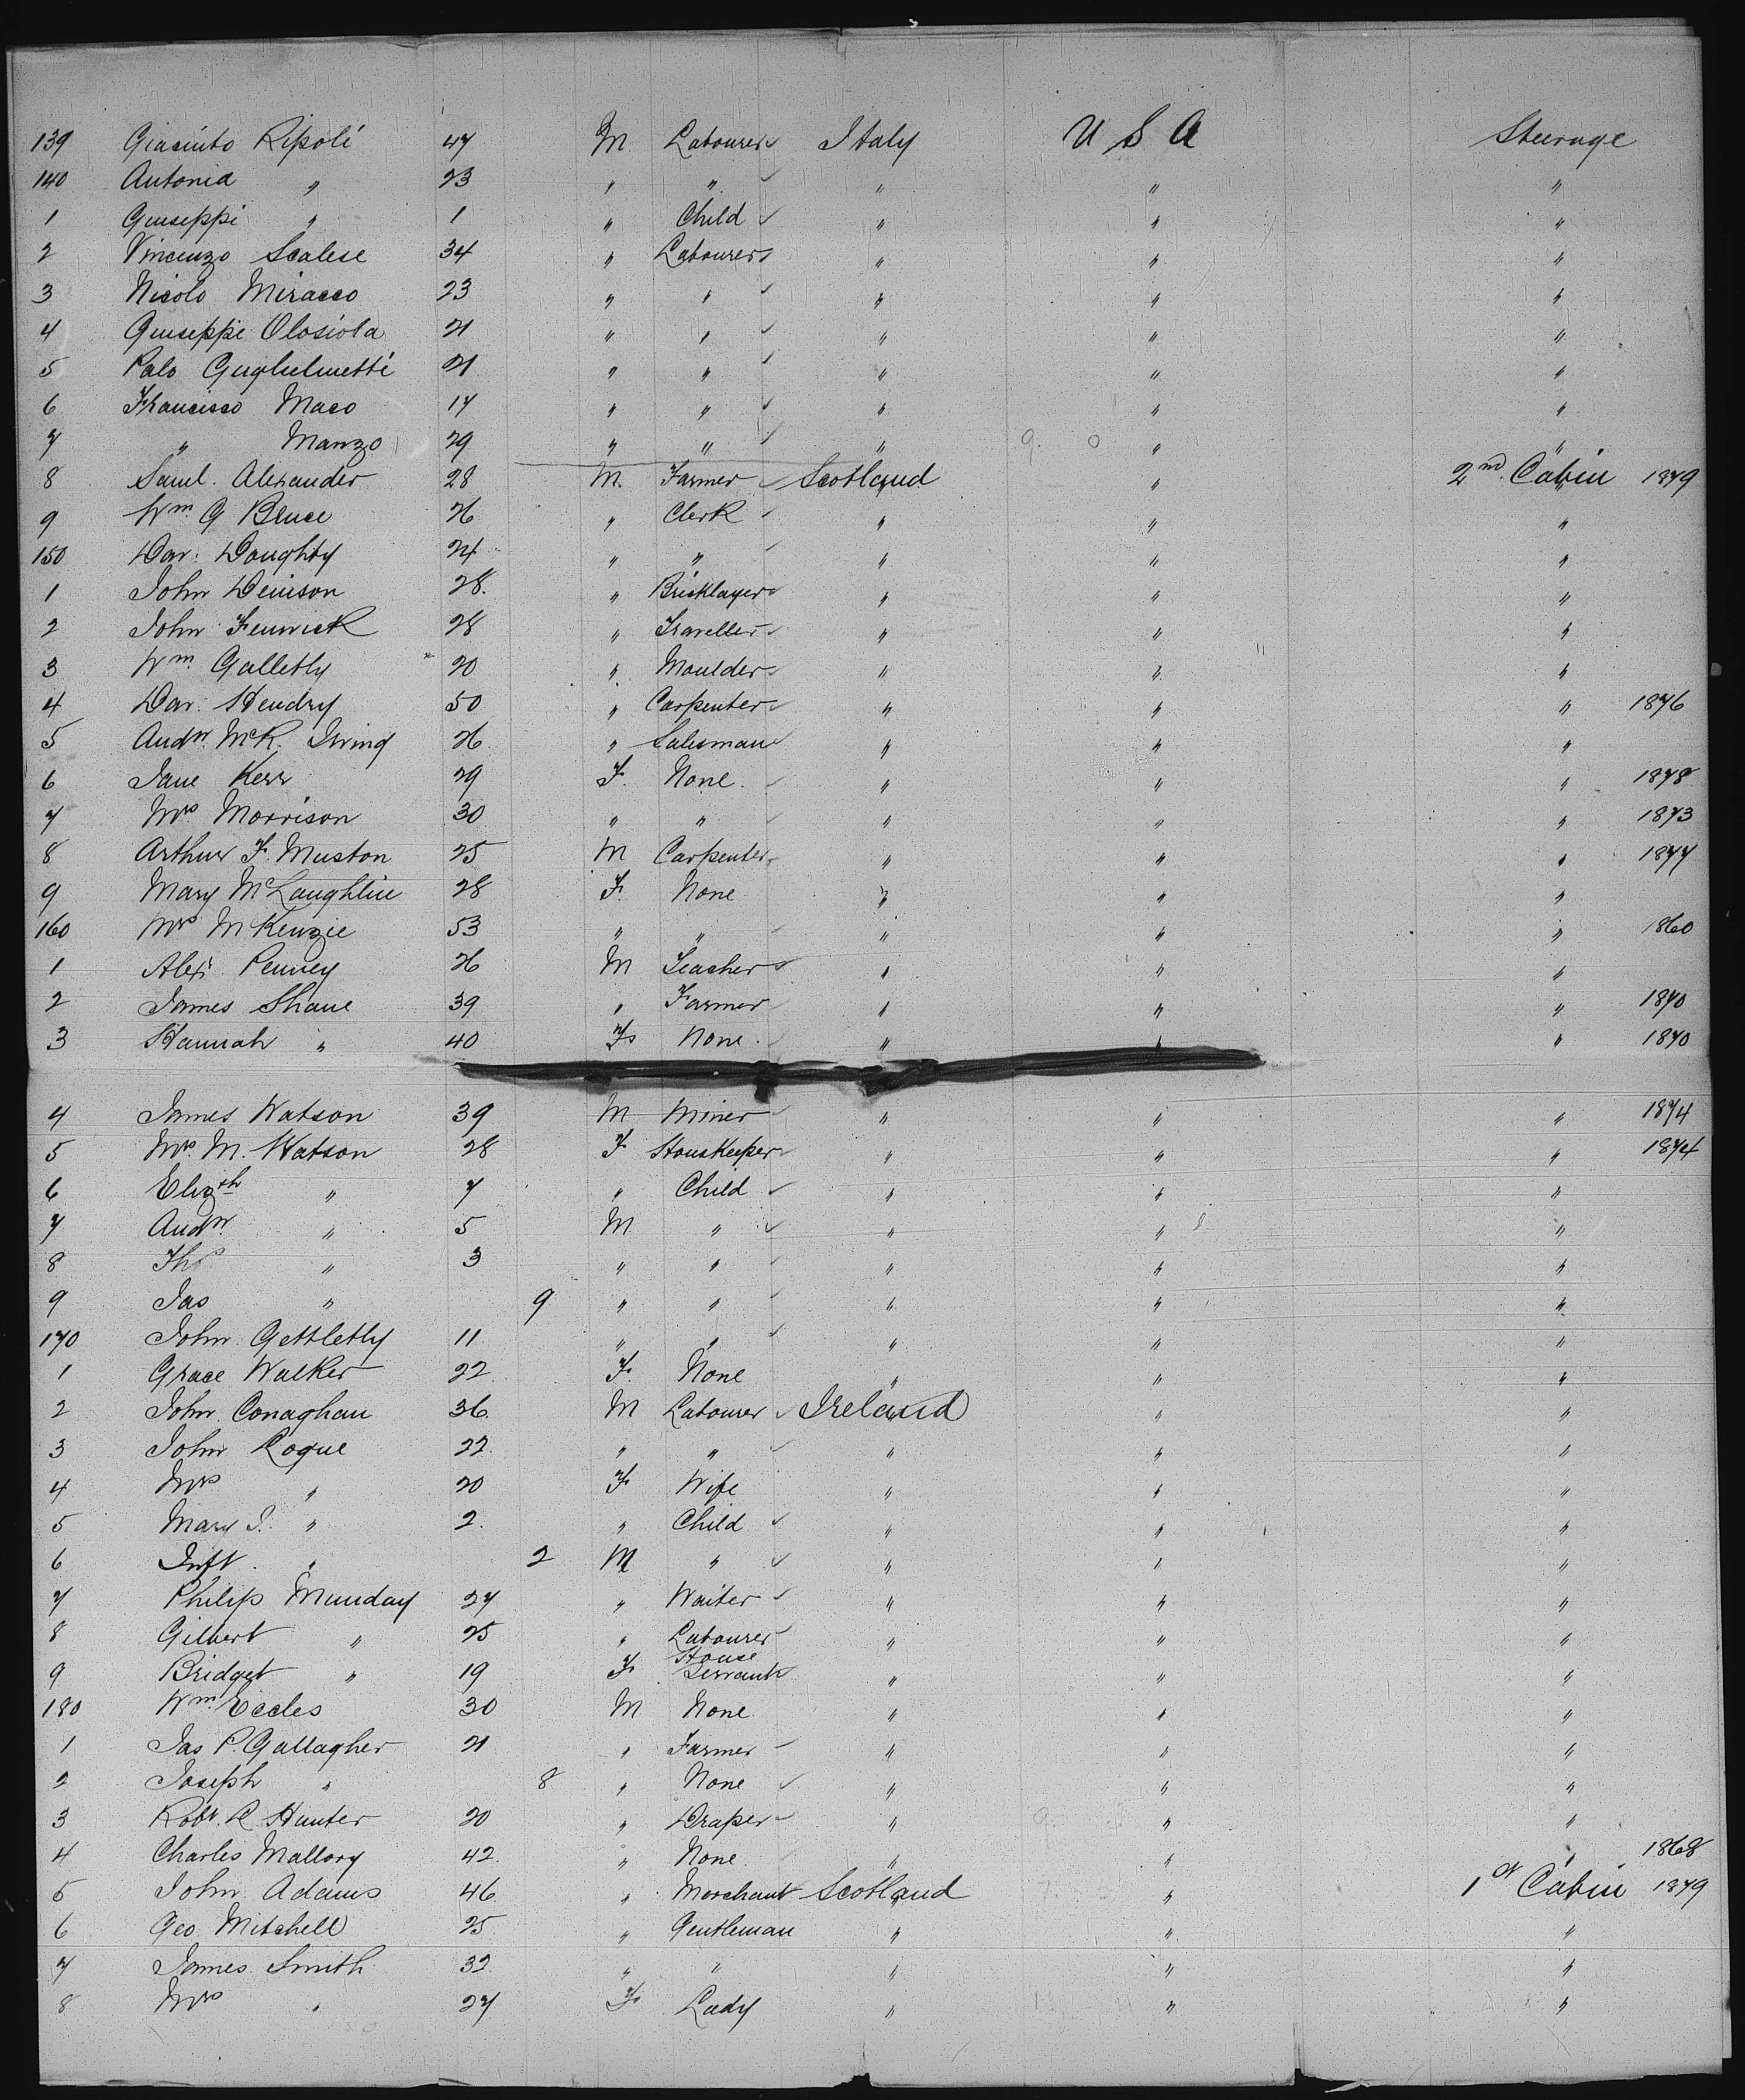 139 Giacinto Ripoli 47 M Labourer Italy U S A Steerage
140 Antonia " 23 " " " " "
1 Giuseppi " 1 " Child " " "
2 Vincenzo Scalese 34 " Labourer " " "
3 Nicolo Miracco 23 " " " " "
4 Giuseppe Olosiola 21 " " " " "
5 Palo Guglielmetti 21 " " " " "
6 Francisco Maco 17 " " " " "
7 " Manzo 29 " " " " "
8 Saml. Alexander 28 M. Farmer Scotland " 2nd Cabin 1879
9 Wm G Bruce 26 " Clerk " " "
150 Dav. Doughty 24 " " " " "
1 John Denison 28. " Bricklayer " " "
2 John Fenwick 28 " Traveller " " "
3 Wm Galletly 20 " Moulder " " "
4 Dav. Hendry 50 " Carpenter " " " 1876
5 Andw. McK. Irving 26 " Salesman " " "
6 Jane Kerr 29 F. None. " " " 1878
7 Mrs Morrison 30 " " " " " 1873
8 Arthur F. Muston 25 M Carpenter " " " 1877
9 Mary McLaughlin 28 F. None " " "
160 Mrs McKenzie 53 " " " " " 1860
1 Alexr Penney 26 M Teacher " " "
2 James Shane 39 " Farmer " " " 1870
3 Hannah " 40 F. None. " " " 1870
4 James Watson 39 M Miner " " " 1874
5 Mrs M. Watson 28 F Houskeeper " " " 1874
6 Elizth " 7 " Child " " "
7 Andw. " 5 M " " " "
8 Ths " 3 " " " " "
9 Jas " 9 " " " " "
170 John Gettletly 11 " " " " "
1 Grace Walker 22. F. None " " "
2 John Conaghan 36. M Labourer Ireland " "
3 John Logue 22. " " " " "
4 Mrs " 20 F Wife " " "
5 Mary J. " 2. " Child " " "
6 Inft. " 2 M " " " "
7 Philip Munday 27 " Waiter " " "
8 Gilbert " 25 " Labourer " " "
9 Bridget " 19 F. House Servant " " "
180 Wm Eccles 30 M None " " "
1 Jas P. Gallagher 21 " Farmer " " "
2 Joseph " 8 " None " " "
3 Robt. R Hunter 20 " Draper " " "
4 Charles Mallory 42. " None " " " 1868
5 John Adams 46 " Merchant Scotland " 1st Cabin 1879
6 Geo. Mitchell 25 " Gentleman " " "
7 James Smith 32 " " " " "
8 Mrs " 27 F. Lady " " "